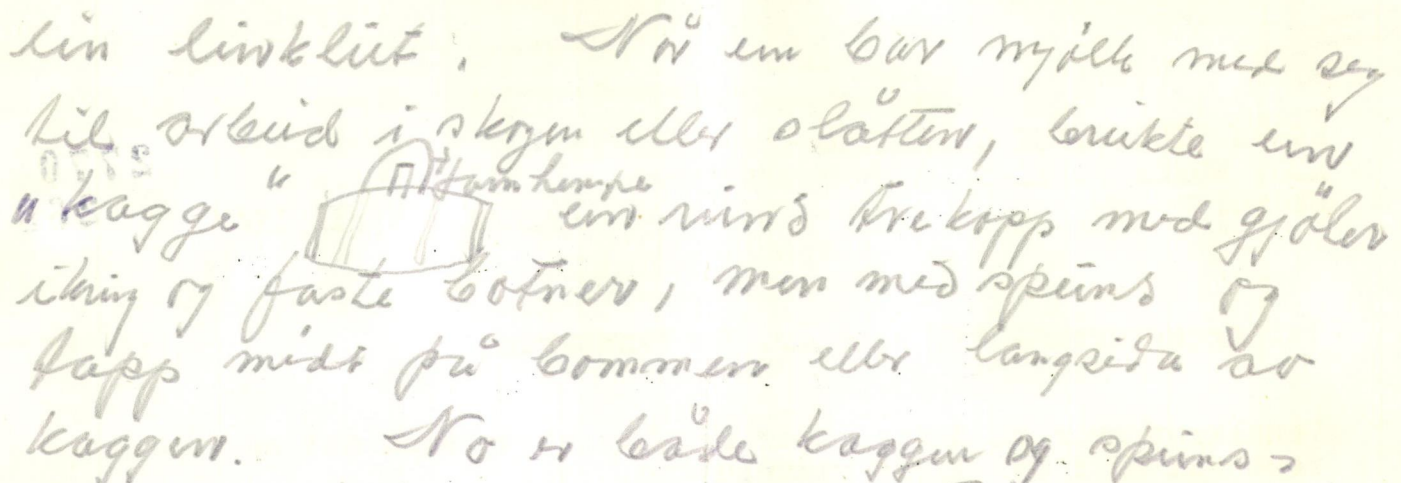 ein linklut. Når ein bar mjølk med seg
til arbeid i skogen eller slåtten, brukte ein
"kagge" jarnhempe ein rund trekopp med gjøler
ikring og faste botner, men med spuns og
tapp midt på bommen eller langsida av
kaggen. No er både kaggen og spuns-